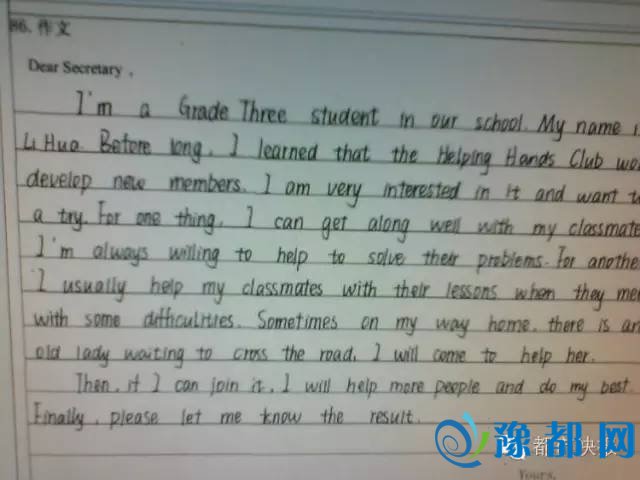 86. 作文
Dear Secretary,
I'm a Grade Three student in our school. My name i
Li Hua. Before long, I learned that the Helping Hands Club wo
develop new members. I am very interested in it and want t
a try. For one thing, I can get along well with my classmate
I'm always willing to help to solve their problems. For anothe
I usually help my classmates with their lessons when they me
with some difficulities. Sometimes on my way home, there is an
old lady waiting to cross the road, I will come to help her.
Then, if I can join it, I will help more people and do my best.
Finally, please let me know the result.
豫都网
Yours,